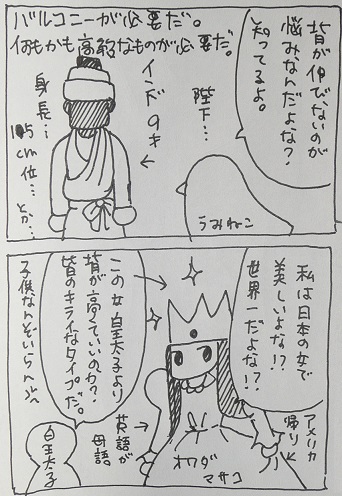 バルコニーが必要だ。
何もかも高級なものが必要だ。
背が伸びないのが
悩みなんだよな?
知ってるよ。
陛下…
インドのキ
身長…
cm位…とか…
うみねこ
私は日本の女で
美しいよな!?
世界一だよな?!
アメリカ
帰り
この女皇太子より
背が高くていいのか?
皆のキライなタイプだ。
子供なんぞいらん
英語が
母語
オワダ
マサコ
皇太子